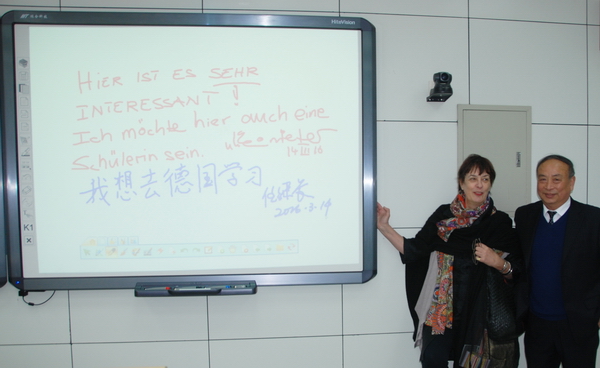 HitaVision
HIER IST ES SEHR
INTERESSANT!
Ich möchte hier auch eine
Schülerin sein.
14 III 16
我想去德国学习
2016.3.14
K1